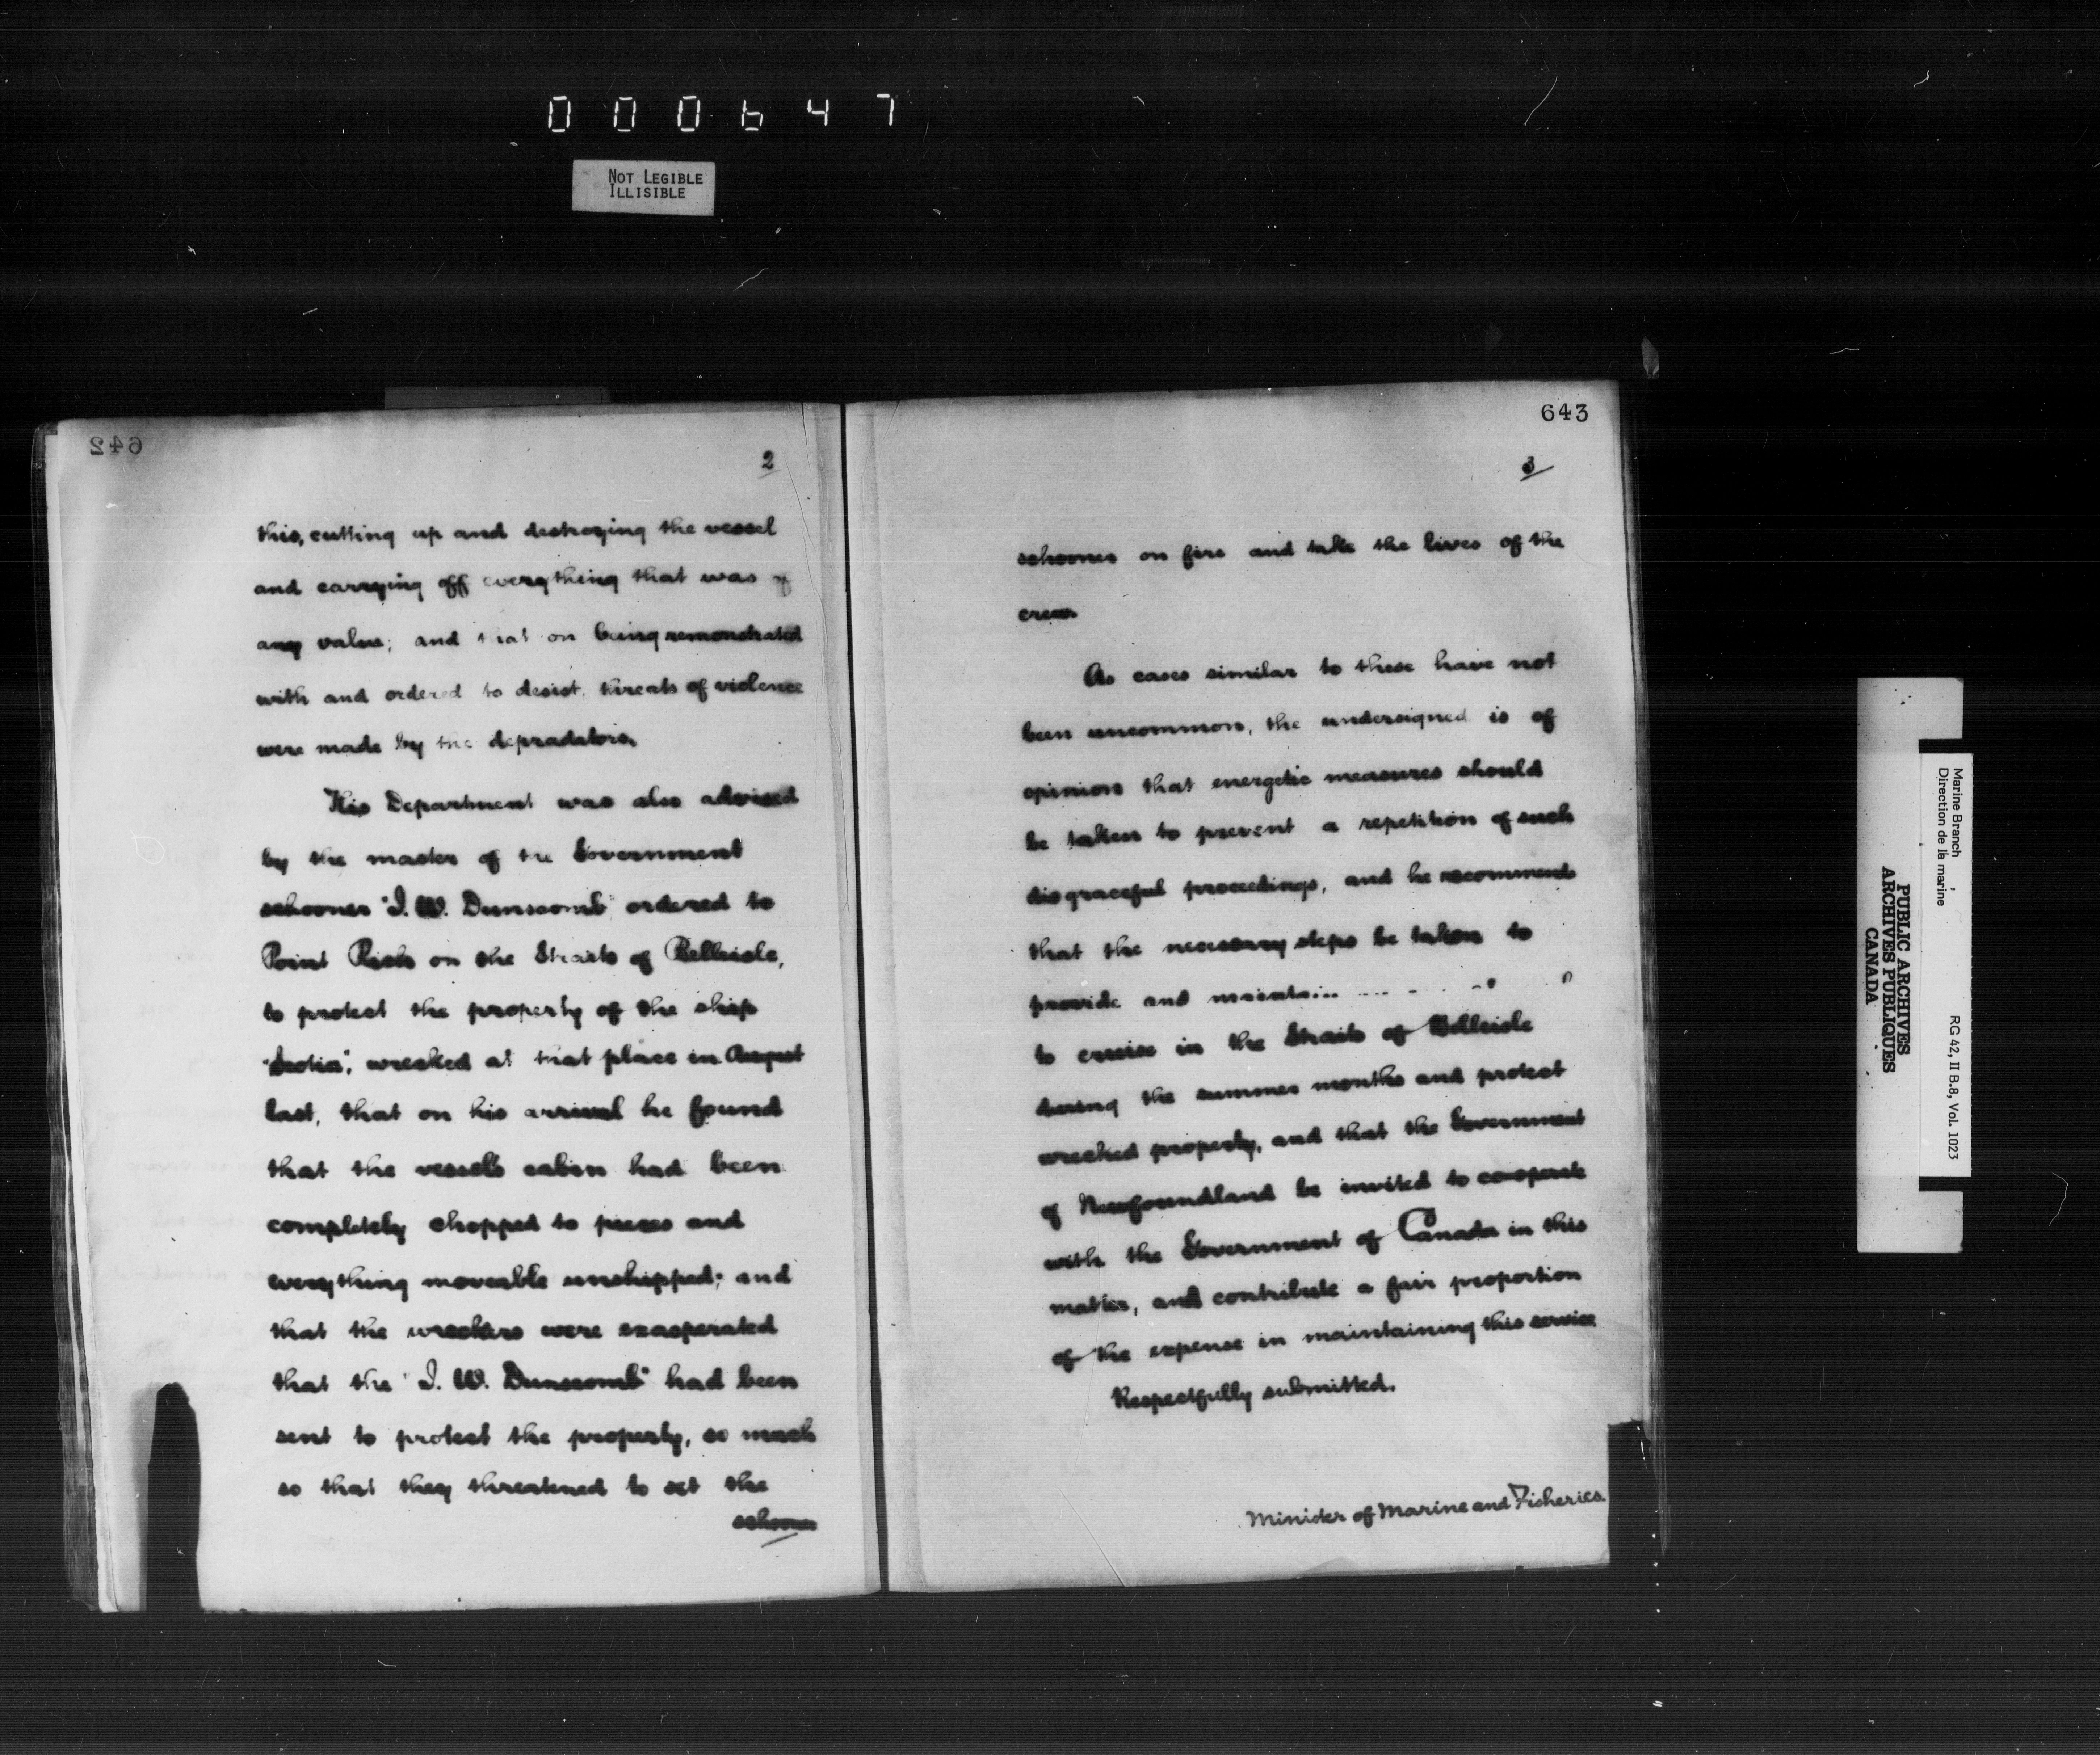 000647
NOT LEGIBLE
ILLISIBLE
642
2
this, cutting up and destroying the vessel
and carrying off everything that was of
any value; and that on being remonstrated
with and ordered to desist, threats of violence
were made by the depradators.
This Department was also advised
by the master of the Government
schooner "J. W. Dunscomb" ordered to
Point Rich on the Straits of Belleisle,
to protect the property of the ship
"Scotia", wrecked at that place in August
last, that on his arrival he found
that the vessels cabin had been
completely chopped to pieces and
everything moveable unshipped; and
that the wreckers were exasperated
that the "J. W. Dunscomb" had been
sent to protect the property, so much
so that they threatened to set the
schooner
643
3
schooner on fire and take the lives of the
crew.
As cases similar to these have not
been uncommon, the undersigned is of
opinion that energetic measures should
be taken to prevent a repetition of such
disgraceful proceedings, and he recommends
that the necessary steps be taken to
provide and maintain
to cruise in the Straits of Belleisle
during the summer months and protect
wrecked property, and that the Government
of Newfoundland be invited to cooperate
with the Government of Canada in this
matter, and contribute a fair proportion
of the expense in maintaining this service.
Respectfully submitted.
Minister of Marine and Fisheries.
Marine Branch
Direction de la marine
RG 42, II B.8, Vol. 1023
PUBLIC ARCHIVES
ARCHIVES PUBLIQUES
CANADA